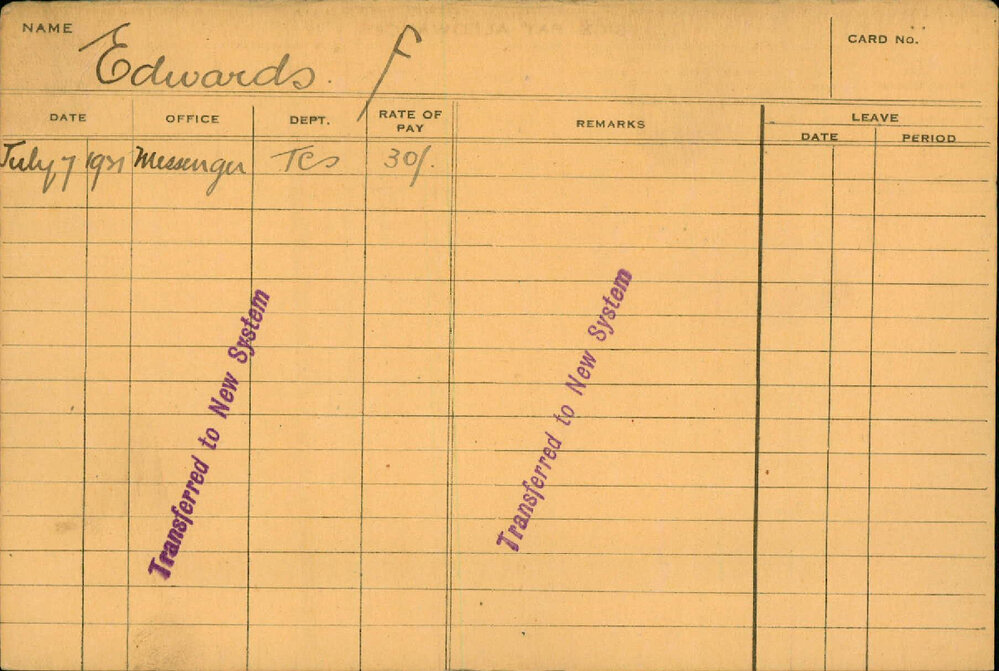 NAME Edwards. F CARD No.
DATE OFFICE DEPT. RATE OF PAY REMARKS LEAVE
DATE PERIOD
July 7 1921 Messenger TCs 30/.
Transferred to New System
Transferred to New System